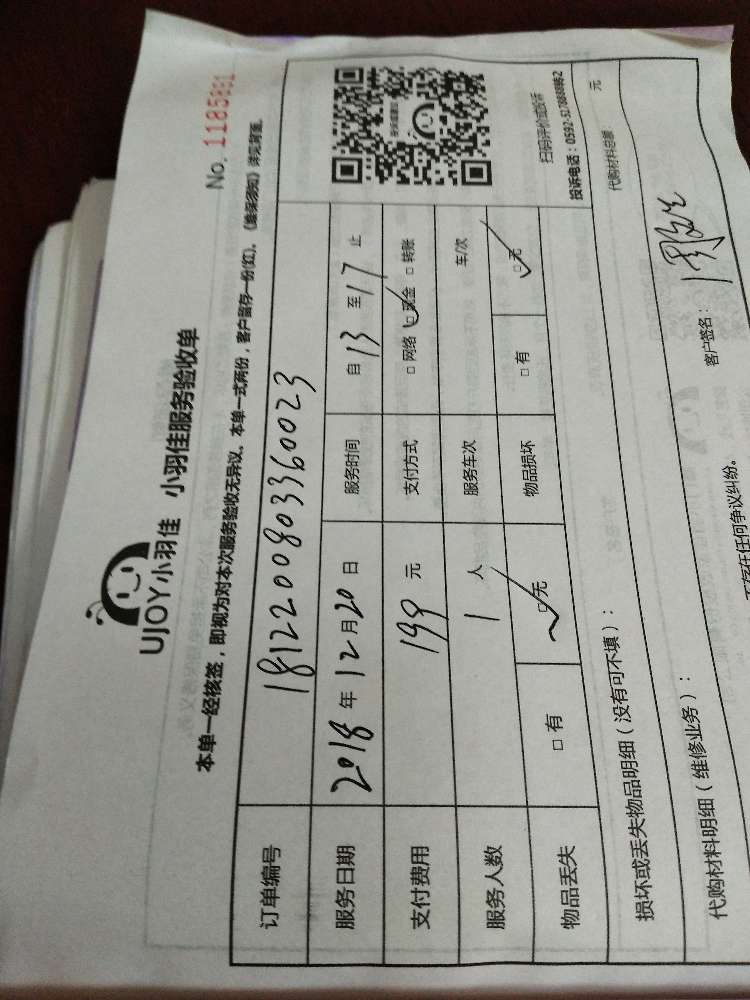 UJOY小羽佳 小羽佳服务验收单
No. 1185881
本单一经核签，即视为对本次服务验收无异议。本单一式两份，客户留存一份(红)。《维保须知》详见背面。
订单编号 1812200803360023
服务日期 2018 年 12 月 20 日 服务时间 自 13 至 17 止
支付费用 199 元 支付方式 □ 网络 □ 现金 □ 转账
服务人数 1 人 服务车次 车/次
物品丢失 □ 有 □ 无 物品损坏 □ 有 □ 无
扫码评价或投诉
损坏或丢失物品明细（没有可不填）：
代购材料明细（维修业务）：
代购材料总额 元
客户签名：
不存在任何争议纠纷。